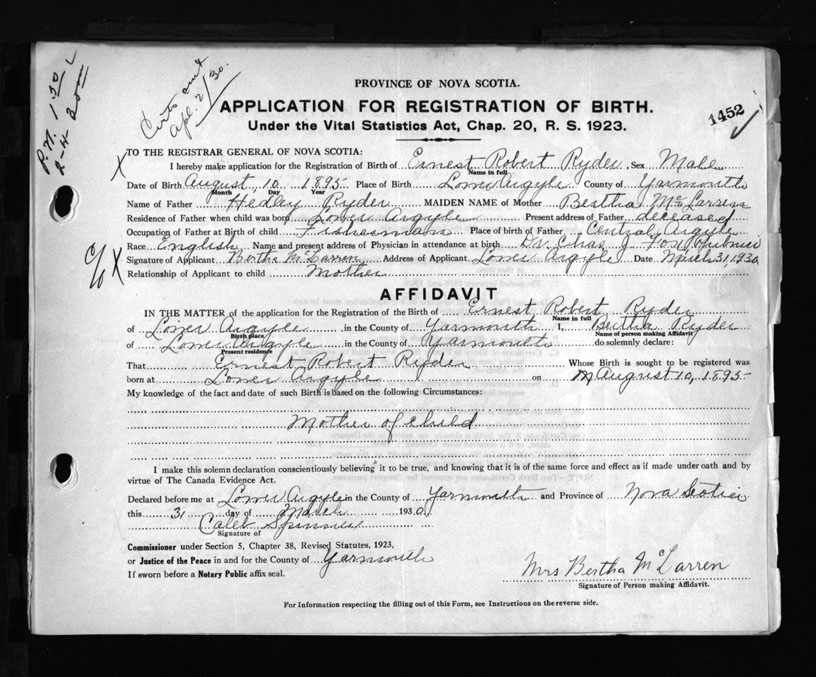 P.N. 1.50
R-H 2000
Certs and
Apl. 2/30.
PROVINCE OF NOVA SCOTIA.
APPLICATION FOR REGISTRATION OF BIRTH.
1452
Under the Vital Statistics Act, Chap. 20, R. S. 1923.
TO THE REGISTRAR GENERAL OF NOVA SCOTIA:
X I hereby make application for the Registration of Birth of Ernest Robert Ryder Sex Male
Name in full
Date of Birth August 10 1895 Place of Birth Lower Argyle County of Yarmouth
Month Day Year
Name of Father Hedley Ryder MAIDEN NAME of Mother Bertha
Residence of Father when child was born Lower Argyle Present address of Father deceased
Occupation of Father at Birth of child Fisherman Place of birth of Father Central Argyle
Race English Name and present address of Physician in attendance at birth Dr. Chas. J. Fox Pubnico
c/o X Signature of Applicant Bertha McLarren Address of Applicant Lower Argyle Date March 31, 1930
Relationship of Applicant to child Mother
AFFIDAVIT
IN THE MATTER of the application for the Registration of the Birth of Ernest Robert Ryder
Name in full
of Lower Argyle in the County of Yarmouth I, Bertha Ryder
Birth place Name of person making Affidavit
of Lower Argyle in the County of Yarmouth do solemnly declare:
Present residence
That Ernest Robert Ryder Whose Birth is sought to be registered was
born at Lower Argyle on August 10, 1895
My knowledge of the fact and date of such Birth is based on the following Circumstances:
Mother of child
I make this solemn declaration conscientiously believing it to be true, and knowing that it is of the same force and effect as if made under oath and by
virtue of The Canada Evidence Act.
Declared before me at Lower Argyle in the County of Yarmouth and Province of Nova Scotia
this 31 day of March 1930
Caleb Spinney
Signature of
Commissioner under Section 5, Chapter 38, Revised Statutes, 1923,
or Justice of the Peace in and for the County of Yarmouth
If sworn before a Notary Public affix seal.
Mrs Bertha McLarren
Signature of Person making Affidavit.
For Information respecting the filling out of this Form, see Instructions on the reverse side.